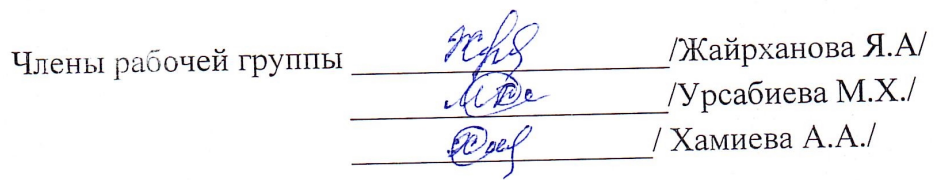 Члены рабочей группы /Жайрханова Я.А/
/Урсабиева М.Х./
/ Хамиева А.А./